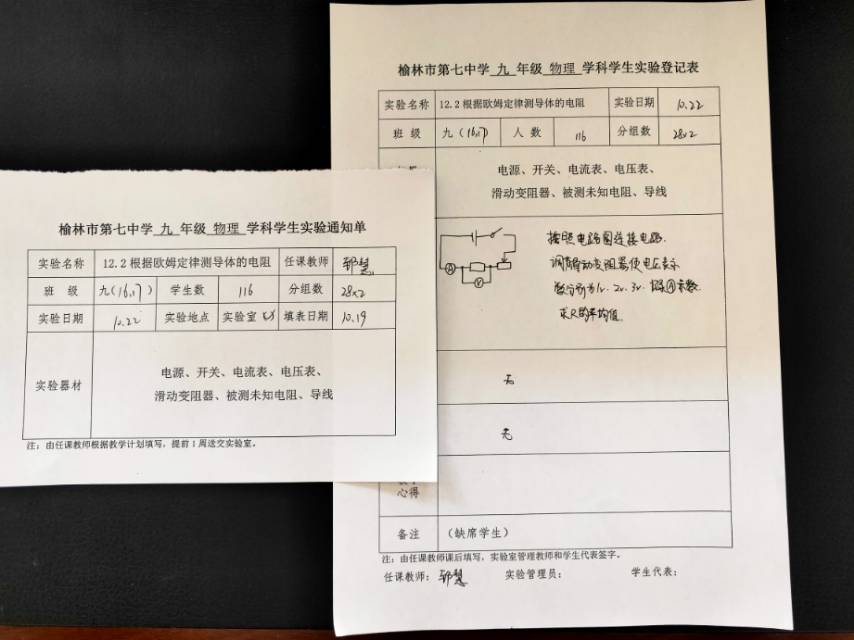 榆林市第七中学 九 年级 物理 学科学生实验通知单
实验名称 12.2根据欧姆定律测导体的电阻 任课教师
班 级 九(16,17) 学生数 116 分组数 28×2
实验日期 10.22 实验地点 实验室 填表日期 10.19
实验器材
电源、开关、电流表、电压表、
滑动变阻器、被测未知电阻、导线
注：由任课教师根据教学计划填写，提前1周送交实验室。
榆林市第七中学 九 年级 物理 学科学生实验登记表
实验名称 12.2根据欧姆定律测导体的电阻 实验日期 10.22
班 级 九(16,17) 人 数 116 分组数 28×2
电源、开关、电流表、电压表、
滑动变阻器、被测未知电阻、导线
A
V
按照电路图连接电路.
调节滑动变阻器使电压表示
数分别为1v. 2v. 3v. 读A示数.
求R的平均值.
无
无
心得
备注 （缺席学生）
注：由任课教师课后填写，实验室管理教师和学生代表签字。
任课教师： 实验管理员： 学生代表：